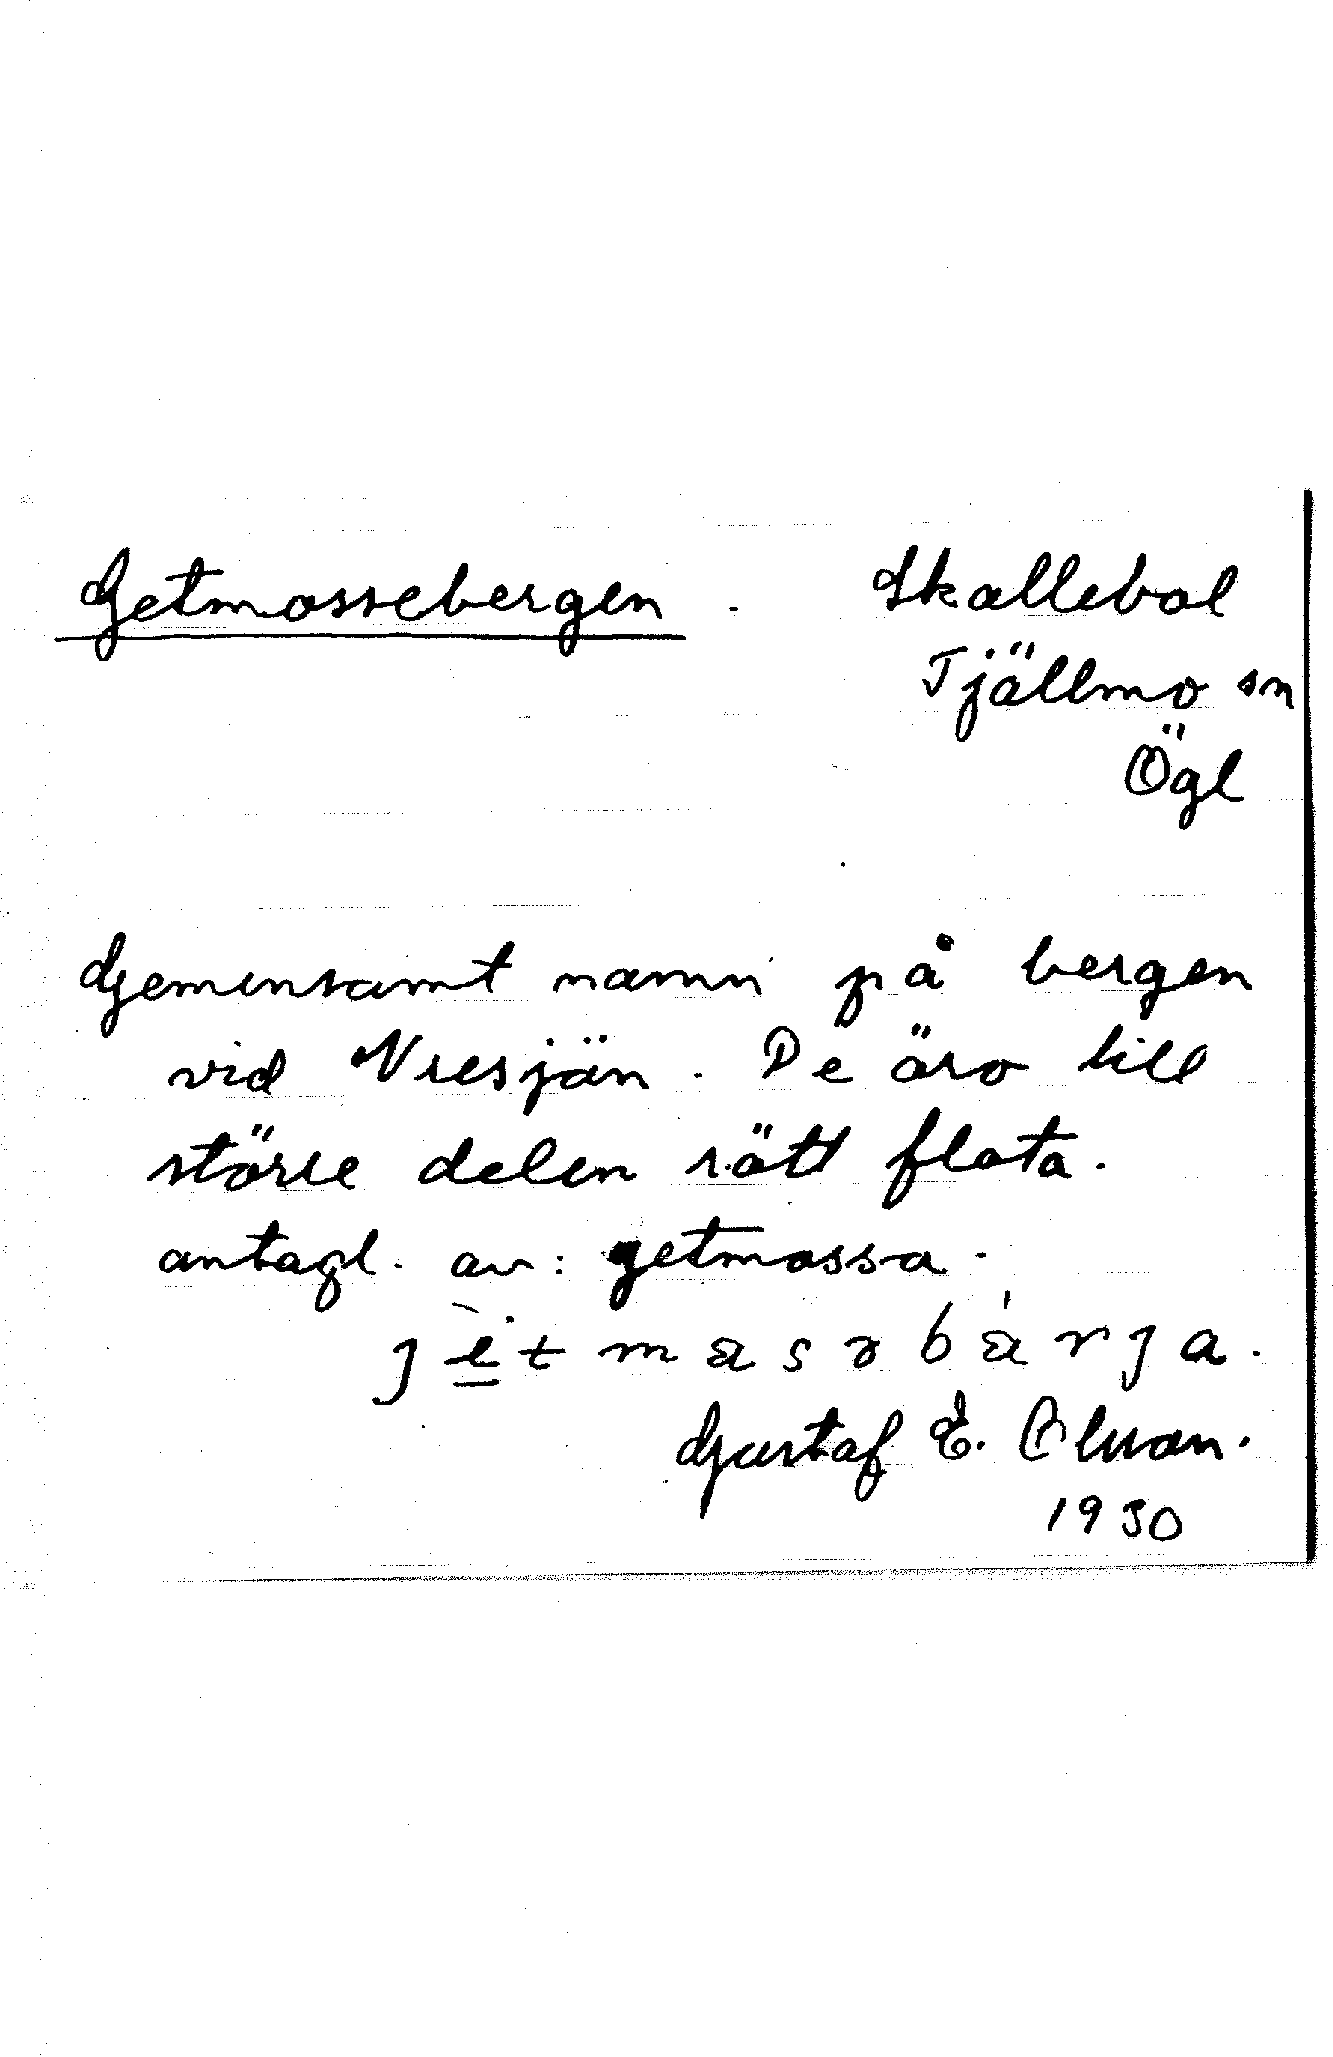 Getmossebergen. Skallebol
Tjällmo sn
Ögl
Gemensamt namn på bergen
vid Vresjön. De äro till
större delen rätt flata.
antagl. av: getmossa.
Gustaf E. Olsson.
1930